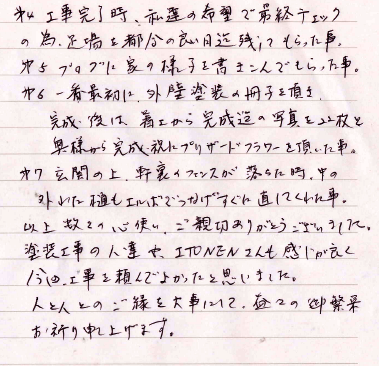 #4 工事完了時、私達の希望で最終チェック
の為、足場を都合の良い日迄残してもらった事。
#5 ブログに家の様子を書きこんでもらった事。
#6 一番最初に、外壁塗装の冊子を頂き、
完成後は、着工から完成迄の写真を22枚と
奥様から完成祝にプリザードフラワーを頂いた事。
#7 玄関の上、軒裏のフェンスが落ちた時、中の
外れた樋も よばずにすぐに直してくれた事。
以上 数々の心使い、ご親切ありがとうございました。
塗装工事の人達や、ITONENさんも感じが良く
今回、工事を頼んでよかったと思いました。
人と人とのご縁を大事にして、益々の御繁栄
お祈り申し上げます。